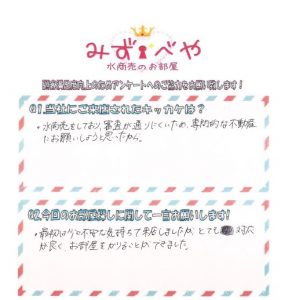 みずべや
水商売のお部屋
顧客満足度向上のためアンケートへのご協力をお願い致します!
Q1.当社にご来店されたキッカケは?
・水商売をしており、審査が通りにくいため、専門的な不動産
にお願いしようと思ったから。
Q2.今回のお部屋探しに関して一言お願いします!
不安な気持ちで来店しましたが、とても 対応
が良く、お部屋をかりることができました。